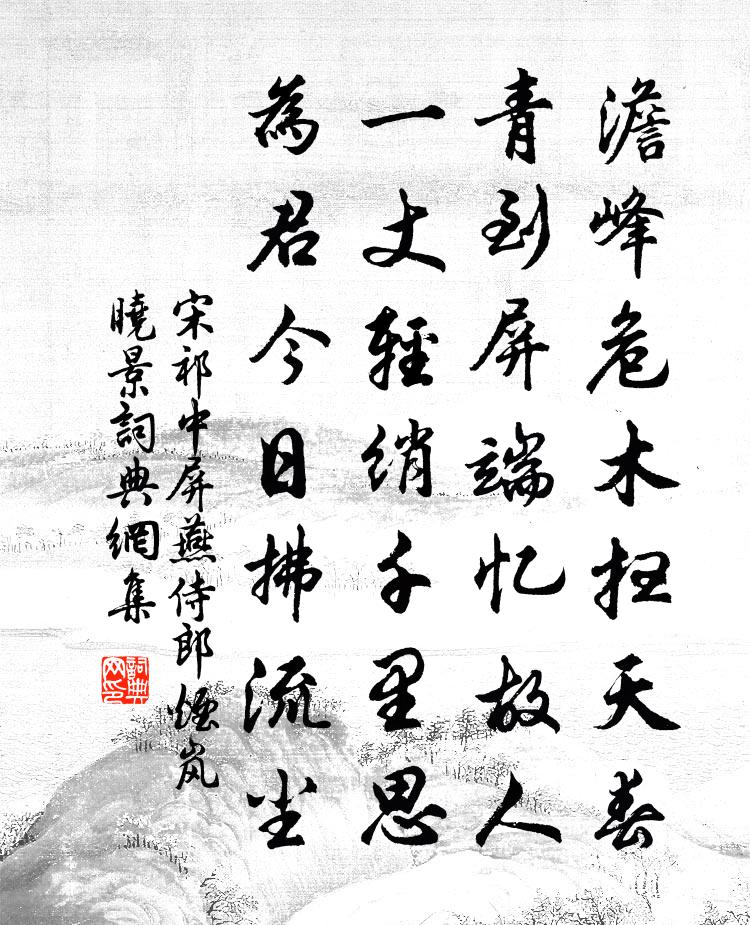 澹峰危木扫天春
青到屏端忆故人
一丈輕綃千里思
為君今日拂流尘
宋祁中屏燕侍郎煙岚
曉景詞典網集
詞典网印